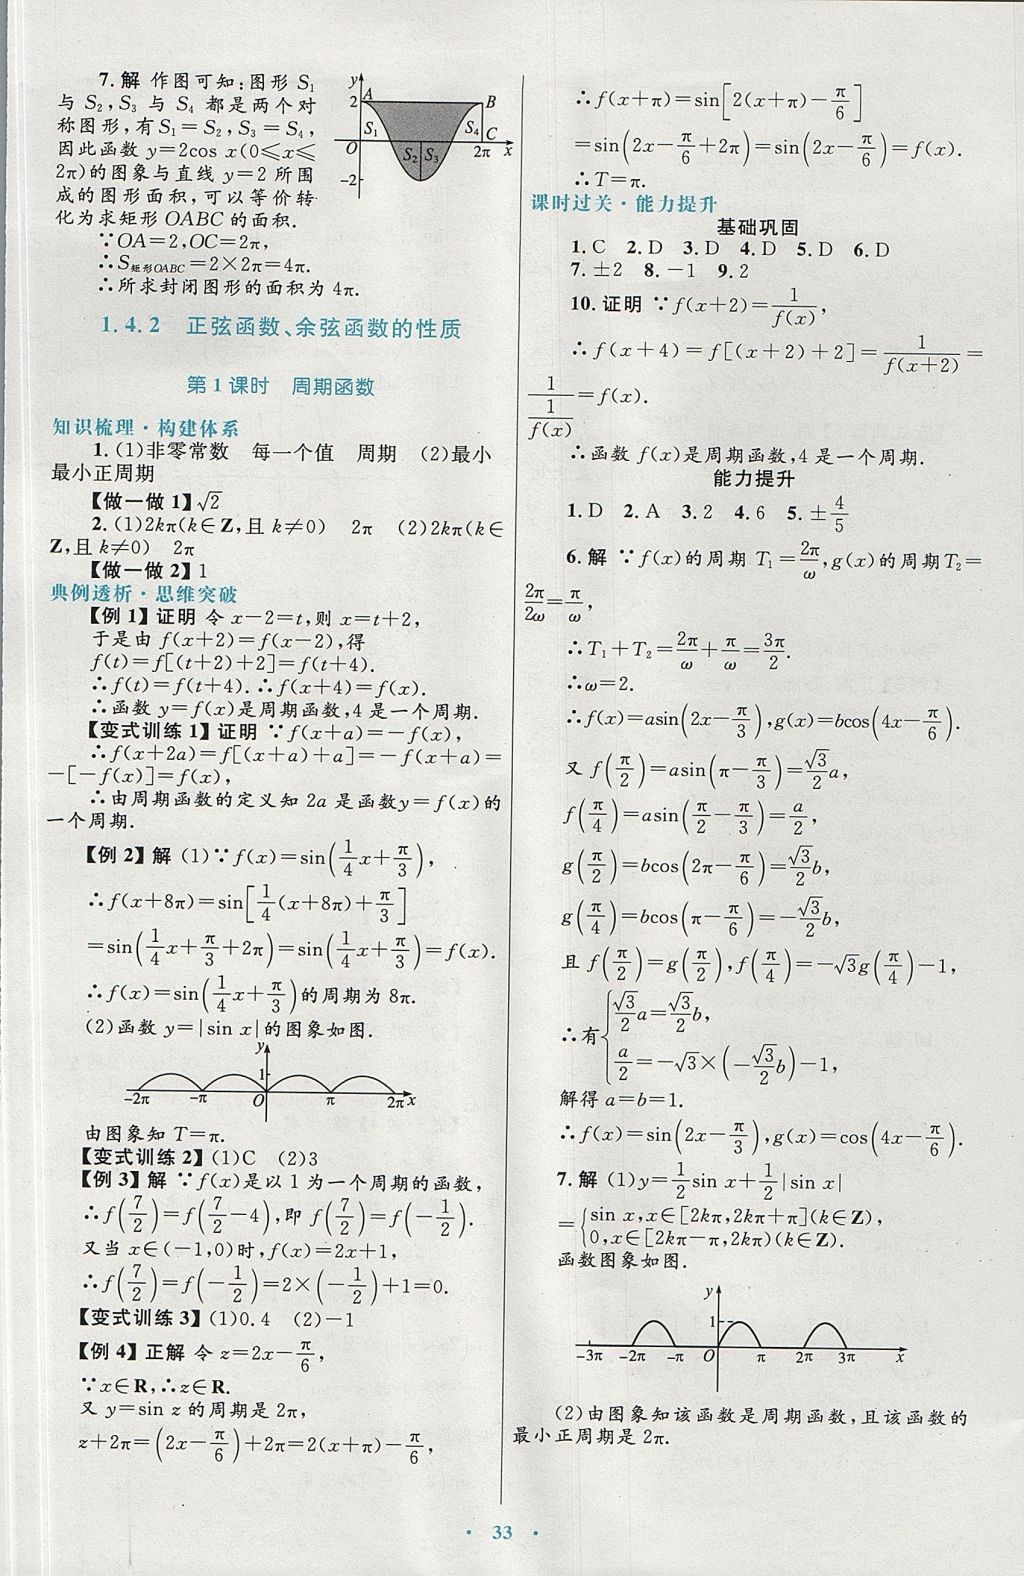 7.解 作图可知:图形 S₁
与 S₂,S₃ 与 S₄ 都是两个对
称图形,有 S₁=S₂,S₃=S₄,
因此函数 y=2cos x(0⩽x⩽
2π)的图象与直线 y=2 所围
成的图形面积,可以等价转
化为求矩形 OABC 的面积.
y
A
B
2
S₁
S₄
C
O
S₂
S₃
2π
x
−2
∵OA=2,OC=2π,
∴S矩形OABC=2×2π=4π.
∴所求封闭图形的面积为 4π.
1.4.2 正弦函数、余弦函数的性质
第1课时 周期函数
知识梳理·构建体系
1.(1)非零常数 每一个值 周期 (2)最小
最小正周期
【做一做1】√2
2.(1)2kπ(k∈Z,且 k≠0) 2π (2)2kπ(k∈
Z,且 k≠0) 2π
【做一做2】1
典例透析·思维突破
【例1】证明 令 x−2=t,则 x=t+2,
于是由 f(x+2)=f(x−2),得
f(t)=f[(t+2)+2]=f(t+4).
∴f(t)=f(t+4).∴f(x+4)=f(x).
∴函数 y=f(x)是周期函数,4 是一个周期.
【变式训练1】证明 ∵f(x+a)=−f(x),
∴f(x+2a)=f[(x+a)+a]=−f(x+a)=
−[−f(x)]=f(x),
∴由周期函数的定义知 2a 是函数y=f(x)的
一个周期.
【例2】解 (1)∵f(x)=sin(1/4 x+π/3),
∴f(x+8π)=sin[1/4(x+8π)+π/3]
=sin(1/4 x+π/3+2π)=sin(1/4 x+π/3)=f(x).
∴f(x)=sin(1/4 x+π/3)的周期为 8π.
(2)函数 y=|sin x|的图象如图.
y
1
−2π −π O π 2π x
由图象知 T=π.
【变式训练2】(1)C (2)3
【例3】解 ∵f(x)是以 1 为一个周期的函数,
∴f(7/2)=f(7/2−4),即 f(7/2)=f(−1/2).
又当 x∈(−1,0)时,f(x)=2x+1,
∴f(7/2)=f(−1/2)=2×(−1/2)+1=0.
【变式训练3】(1)0.4 (2)−1
【例4】正解 令 z=2x−π/6,
∵x∈R,∴z∈R.
又 y=sin z 的周期是 2π,
z+2π=(2x−π/6)+2π=2(x+π)−π/6,
∴f(x+π)=sin[2(x+π)−π/6]
=sin(2x−π/6+2π)=sin(2x−π/6)=f(x).
∴T=π.
课时过关·能力提升
基础巩固
1.C 2.D 3.D 4.D 5.D 6.D
7.±2 8.−1 9.2
10.证明 ∵f(x+2)=1/f(x),
∴f(x+4)=f[(x+2)+2]=1/f(x+2)=
1/(1/f(x))=f(x).
∴函数 f(x)是周期函数,4 是一个周期.
能力提升
1.D 2.A 3.2 4.6 5.±4/5
6.解 ∵f(x)的周期 T₁=2π/ω,g(x)的周期T₂=
2π/2ω=π/ω,
∴T₁+T₂=2π/ω+π/ω=3π/2.
∴ω=2.
∴f(x)=asin(2x−π/3),g(x)=bcos(4x−π/6).
又 f(π/2)=asin(π−π/3)=√3/2 a,
f(π/4)=asin(π/2−π/3)=a/2,
g(π/2)=bcos(2π−π/6)=√3/2 b,
g(π/4)=bcos(π−π/6)=−√3/2 b,
且 f(π/2)=g(π/2),f(π/4)=−√3g(π/4)−1,
∴有{√3/2 a=√3/2 b,
a/2=−√3×(−√3/2 b)−1,
解得 a=b=1.
∴f(x)=sin(2x−π/3),g(x)=cos(4x−π/6).
7.解 (1)y=1/2 sin x+1/2|sin x|
={sin x,x∈[2kπ,2kπ+π](k∈Z),
0,x∈[2kπ−π,2kπ)(k∈Z).
函数图象如图.
y
1
−3π −2π −π O π 2π 3π x
(2)由图象知该函数是周期函数,且该函数的
最小正周期是 2π.
· 33 ·